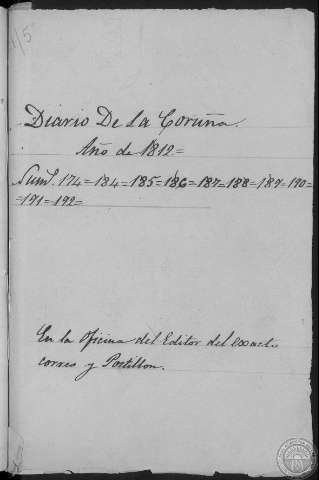 1/5
Diario De la Coruña.
Año de 1812=
Num.s 174=184=185=186=187=188=189=190=
=191=192=
En la Oficina del Editor del exacto
correo y Postillon.